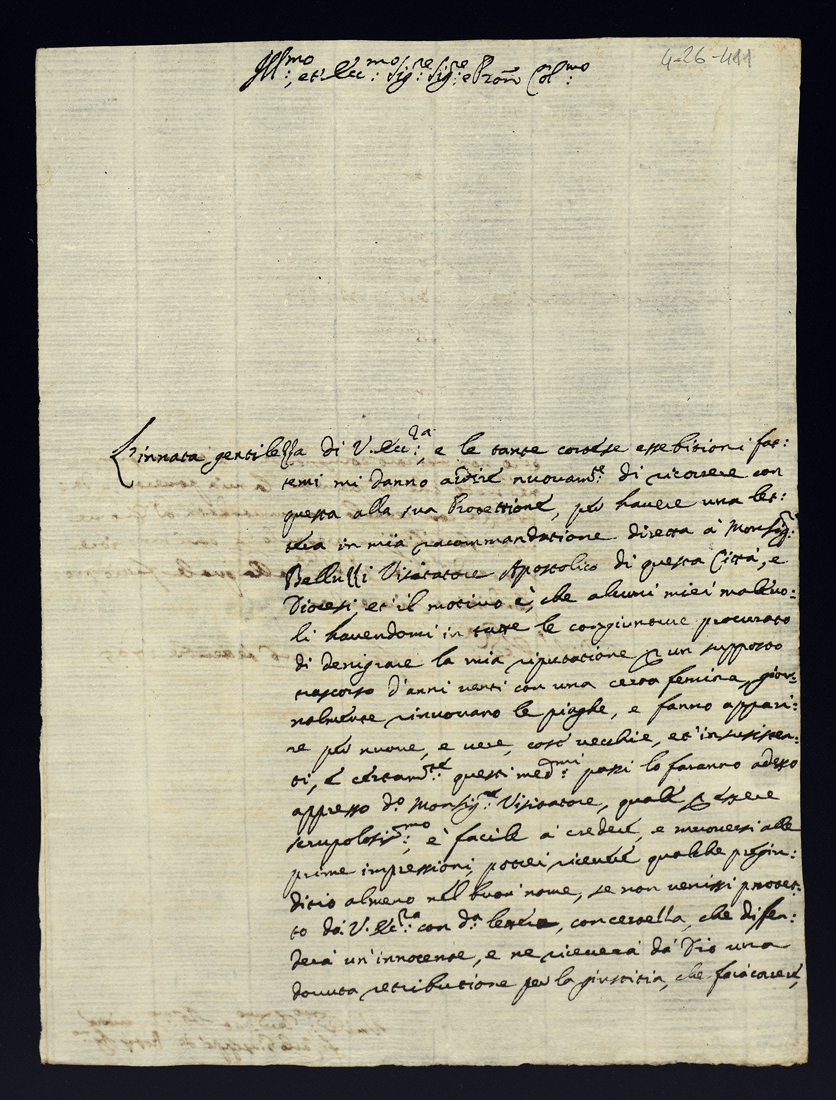 4-26-411
Ill:mo, et Ecc:mo Sig:re Sig:re e Pron Col:mo
L'innata gentilezza di V. Ecc:za, e le tante cortese essebitioni fat:
temi mi danno ardire nuovam:te di ricorrere con
questa alla sua Protettione, per havere una let:
tera in mia racommandatione diretta à Monsig:r
Belluzzi Visitatore Apostolico di questa Città, e
Diocesi, et il motivo è, che alcuni miei malevo:
li havendomi in tutte le congiunture procurato
di denigrare la mia riputatione per un supposto
trascorso d'anni venti con una certa femina, gior:
nalmente rinuovano le piaghe, e fanno appari:
re per nuove, e vere, cose vecchie, et insussisten:
ti, e certam:te questi med:mi passi lo faranno adesso
appresso d:o Monsig:re Visitatore, quale per essere
scrupolosis:mo, e facile à credere, e muoversi alle
prime impressioni, potrei ricevere qualche pregiu:
ditio almeno nel buon nome, se non venissi protet:
to da V. Ecc:za con d:a lettera, con certezza, che difen:
derà un'innocente, e ne riceverà da Dio una
dovuta retributione per la giustitia, che farà havere,